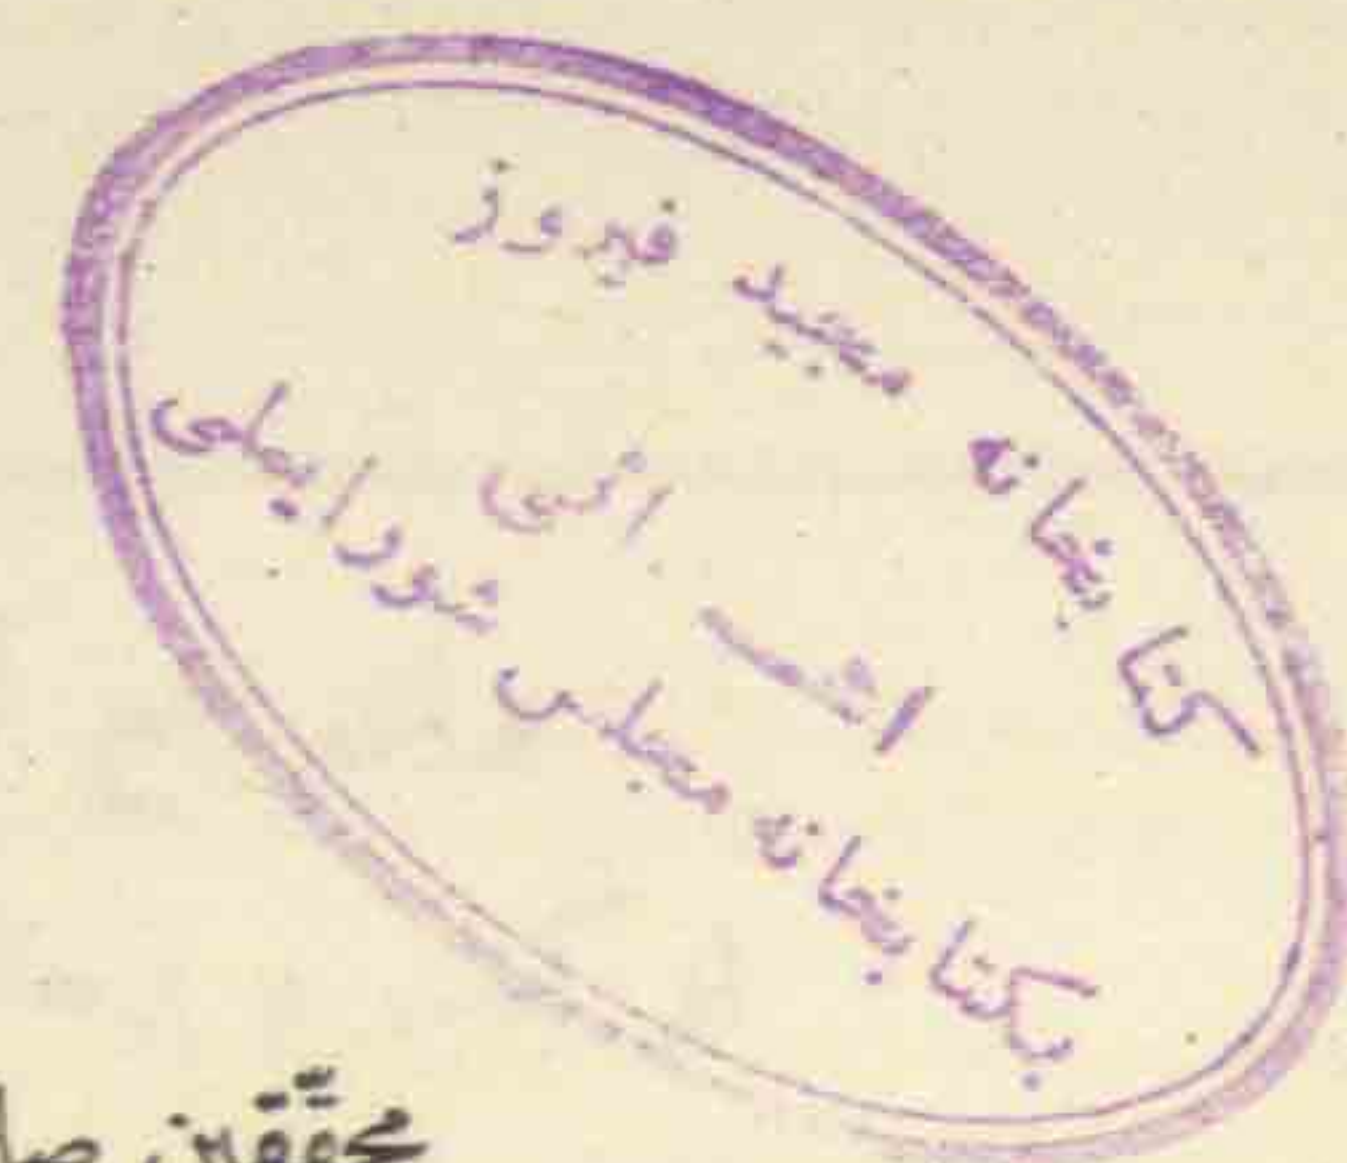 کتابخانه مجید فیروز
بکتابخانه مجلس شورایملی
محققین